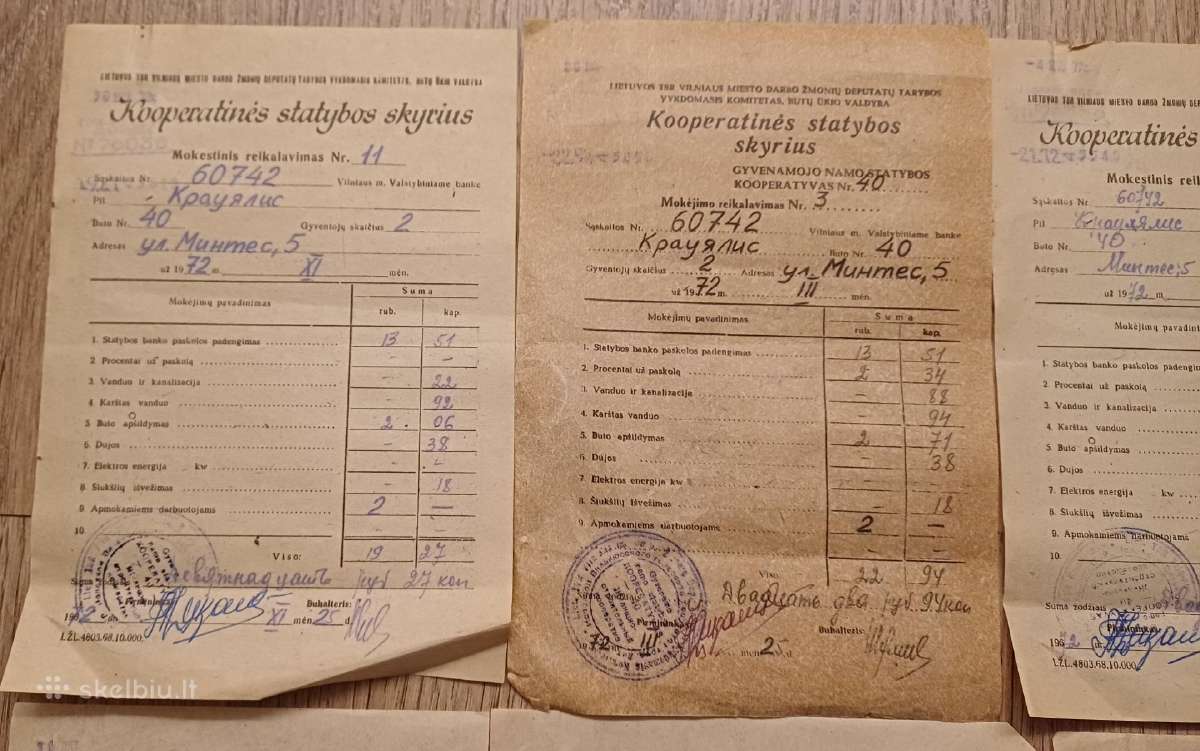 LIETUVOS TSR VILNIAUS MIESTO DARBO ŽMONIŲ DEPUTATŲ TARYBOS VYKDOMASIS KOMITETAS, BUTŲ ŪKIO VALDYBA
Kooperatinės statybos skyrius
Mokestinis reikalavimas Nr. 11
Sąskaitos Nr. 60742 Vilniaus m. Valstybiniame banke
Pil. Крауялис
Buto Nr. 40 Gyventojų skaičius 2
Adresas ул. Минтес, 5
už 1972 m. XI mėn.
Mokėjimų pavadinimas Suma
rub. kap.
1. Statybos banko paskolos padengimas 13 51
2 Procentai už paskolą - -
3. Vanduo ir kanalizacija - 22
4. Karštas vanduo - 92
5 Buto apšildymas 2 06
6. Dujos - 38
7. Elektros energija kw - -
8 Šiukšlių išvežimas - 18
9. Apmokamiems darbuotojams 2 -
10.
Viso: 19 27
Suma девятнадцать руб 27 коп
Buhalteris:
XI mėn. 25 d.
LŽL.4803.68.10.000.
LIETUVOS TSR VILNIAUS MIESTO DARBO ŽMONIŲ DEPUTATŲ TARYBOS
VYKDOMASIS KOMITETAS, BUTŲ ŪKIO VALDYBA
Kooperatinės statybos
skyrius
GYVENAMOJO NAMO STATYBOS
KOOPERATYVAS Nr. 40
Mokėjimo reikalavimas Nr. 3
Sąskaitos Nr. 60742 Vilniaus m. Valstybiniame banke
Крауялис Buto Nr. 40
Gyventojų skaičius 2 Adresas ул. Минтес, 5
už 1972 m. III mėn.
Mokėjimų pavadinimas Suma
rub. kap.
1. Statybos banko paskolos padengimas 13 51
2. Procentai už paskolą 2 34
3. Vanduo ir kanalizacija - 88
4. Karštas vanduo - 94
5. Buto apšildymas 2 71
6. Dujos - 38
7. Elektros energija kw - -
8. Šiukšlių išvežimas - 18
9. Apmokamiems darbuotojams 2 -
- -
Viso 22 94
Двадцать два руб. 94 коп
Pirmininkas
Buhalteris:
72 III mėn 25 d.
LIETUVOS TSR VILNIAUS MIESTO DARBO ŽMONIŲ
Kooperatinės
Mokestinis
Sąskaitos Nr. 60742
Pil Крауялис
Buto Nr. 40
Adresas Минтес, 5
už 1972 m.
Mokėjimų
1. Statybos banko paskolos
2 Procentai už paskolą
3. Vanduo ir kanalizacija
4. Karštas vanduo
5 Buto apšildymas
6. Dujos
7. Elektros energija kw
8. Šiukšlių išvežimas
9. Apmokamiems darbuotojams
10.
Suma žodžiais
Pirmininkas
LŽL.4803.68.10.000
skelbiu.lt